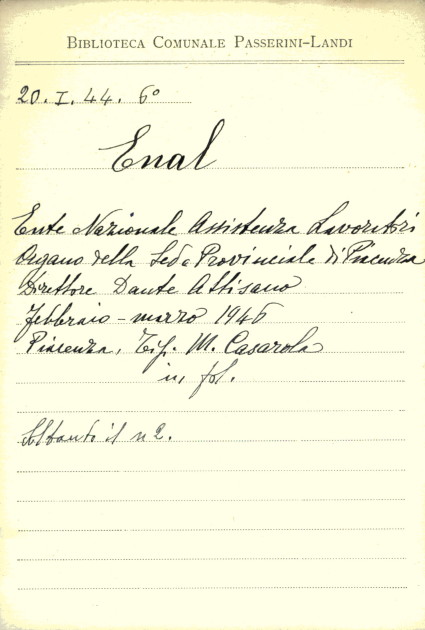 BIBLIOTECA COMUNALE PASSERINI-LANDI
20. I. 44. 6°
Enal
Ente Nazionale Assistenza Lavoratori
Organo della Sede Provinciale di Piacenza
Direttore Dante Attisano
Febbraio - marzo 1946
Piacenza, Tip. M. Casarola
in fol.
il n 2.